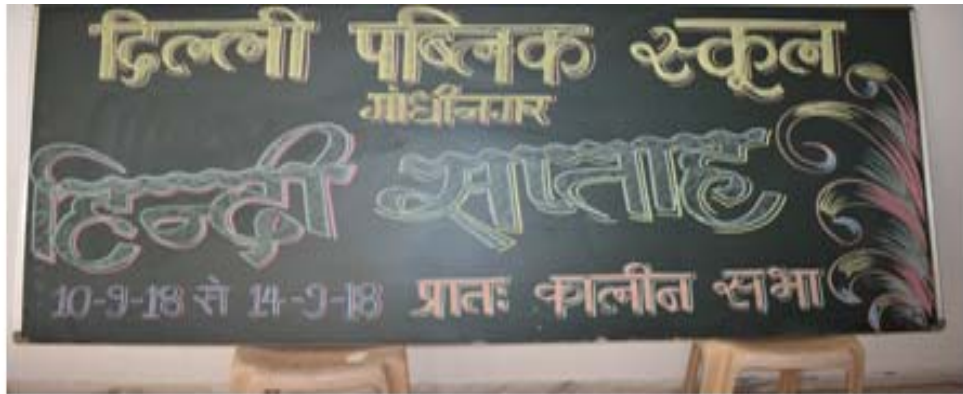 दिल्ली पब्लिक स्कूल
गांधीनगर
हिन्दी सप्ताह
10-9-18 से 14-9-18 प्रातः कालीन सभा